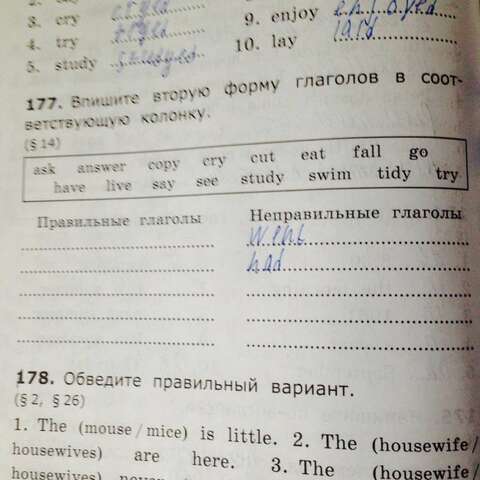 3. cry cryed 9. enjoy enjoyed
4. try tryed 10. lay laid
5. study studyed
177. Впишите вторую форму глаголов в соот-
ветствующую колонку.
(§ 14)
ask answer copy cry cut eat fall go
have live say see study swim tidy try
Правильные глаголы Неправильные глаголы
went
had
178. Обведите правильный вариант.
(§ 2, § 26)
1. The (mouse / mice) is little. 2. The (housewife /
housewives) are here. 3. The (housewife /
housewives)